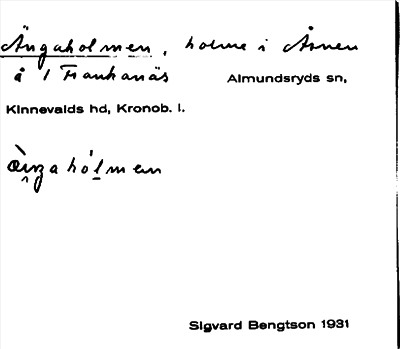 Ängaholmen, holme i Åsnen
å 1 Frankanäs Almundsryds sn,
Kinnevalds hd, Kronob. l.
ængahòlmen
Sigvard Bengtson 1931